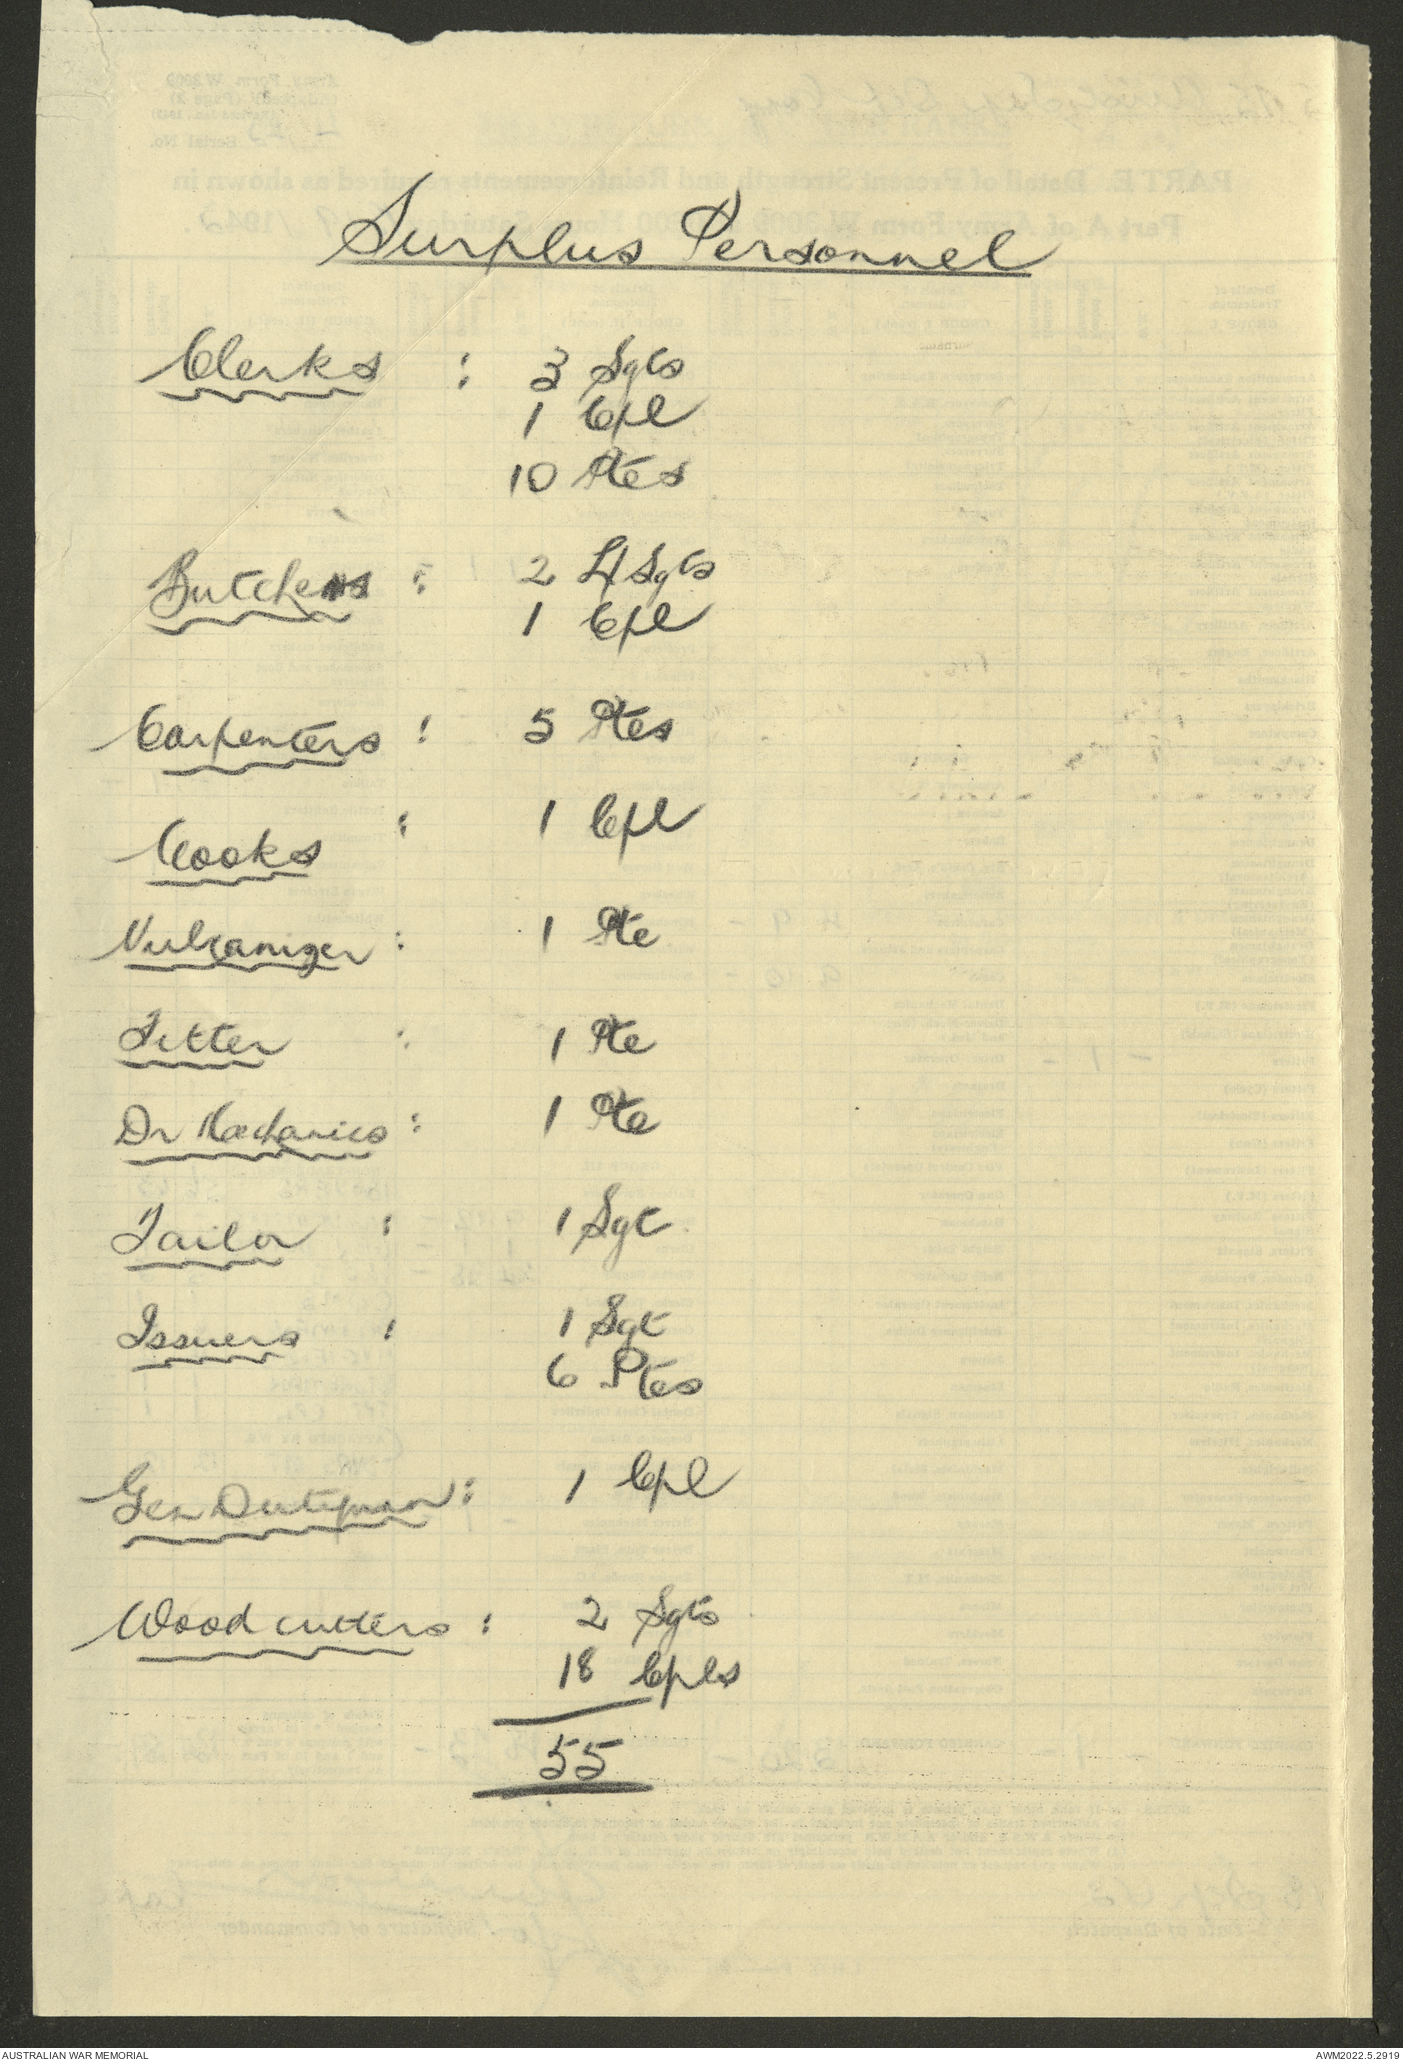 Surplus Personnel
Clerks : 3 Sgts
1 Cpl
10 Ptes
Butchers : 2 L/Sgts
1 Cpl
Carpenters : 5 Ptes
Cooks : 1 Cpl
Vulcanizer : 1 Pte
Fitter : 1 Pte
Dr Mechanics : 1 Pte
Tailor : 1 Sgt
Issuers : 1 Sgt
6 Ptes
Gen Dutyman : 1 Cpl
Wood cutters : 2 Sgts
18 Cpls
55
AUSTRALIAN WAR MEMORIAL
AWM2022.5.2919